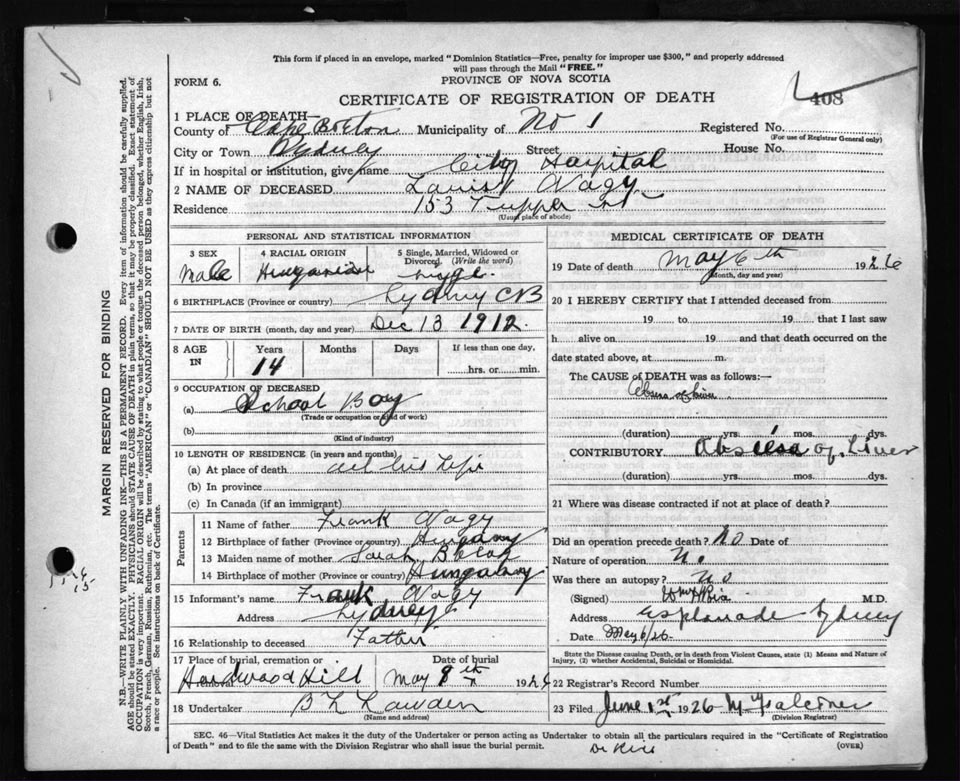 This form if placed in an envelope, marked "Dominion Statistics—Free, penalty for improper use $300," and properly addressed
will pass through the Mail "FREE."
FORM 6.
PROVINCE OF NOVA SCOTIA
CERTIFICATE OF REGISTRATION OF DEATH
408
1 PLACE OF DEATH—
County of Cape Breton Municipality of No 1 Registered No.
(For use of Registrar General only)
City or Town Sydney Street House No.
If in hospital or institution, give name City Hospital
2 NAME OF DECEASED Nagy
Residence 153 Tupper St
(Usual place of abode)
PERSONAL AND STATISTICAL INFORMATION
3 SEX
Male
4 RACIAL ORIGIN
Hungarian
5 Single, Married, Widowed or Divorced. (Write the word)
single
6 BIRTHPLACE (Province or country) Sydney CB
7 DATE OF BIRTH (month, day and year) Dec 13 1912
8 AGE IN
Years
14
Months
Days
If less than one day,
hrs. or min.
9 OCCUPATION OF DECEASED
(a) School Boy
(Trade or occupation or kind of work)
(b)
(Kind of industry)
10 LENGTH OF RESIDENCE (in years and months)
(a) At place of death all his life
(b) In province
(c) In Canada (if an immigrant)
Parents
11 Name of father Frank Nagy
12 Birthplace of father (Province or country) Hungary
13 Maiden name of mother Sarah
14 Birthplace of mother (Province or country) Hungary
15 Informant's name Frank Nagy
Address Sydney
16 Relationship to deceased Father
17 Place of burial, cremation or removal
Hardwood Hill
Date of burial
May 8th 192
18 Undertaker
(Name and address)
MEDICAL CERTIFICATE OF DEATH
19 Date of death May 6th 1926
(Month, day and year)
20 I HEREBY CERTIFY that I attended deceased from
19 to 19 that I last saw
h alive on 19 and that death occurred on the
date stated above, at m.
The CAUSE of DEATH was as follows:—
of Liver
(duration) yrs. 1 mos. dys.
CONTRIBUTORY Abscess of Liver
(duration) yrs. mos. dys.
21 Where was disease contracted if not at place of death?
Did an operation precede death? No Date of
Nature of operation No
Was there an autopsy? no
(Signed) M.D.
Address Esplanade Sydney
Date May 6/26
State the Disease causing Death, or in death from Violent Causes, state (1) Means and Nature of
Injury, (2) whether Accidental, Suicidal or Homicidal.
22 Registrar's Record Number
23 Filed June 1st 1926
(Division Registrar)
SEC. 46—Vital Statistics Act makes it the duty of the Undertaker or person acting as Undertaker to obtain all the particulars required in the "Certificate of Registration
of Death" and to file the same with the Division Registrar who shall issue the burial permit.
(OVER)
MARGIN RESERVED FOR BINDING
N.B.—WRITE PLAINLY WITH UNFADING INK—THIS IS A PERMANENT RECORD. Every item of information should be carefully supplied.
AGE should be stated EXACTLY. PHYSICIANS should STATE CAUSE OF DEATH in plain terms, so that it may be properly classified. Exact statement of
OCCUPATION is very important. RACIAL ORIGIN will be described by stating to what people or tongue the deceased person belonged, whether English, Irish,
Scotch, French, German, Russian, Ruthenian, etc. The terms "AMERICAN" or "CANADIAN" SHOULD NOT BE USED as they express citizenship but not
a race or people. See instructions on back of Certificate.